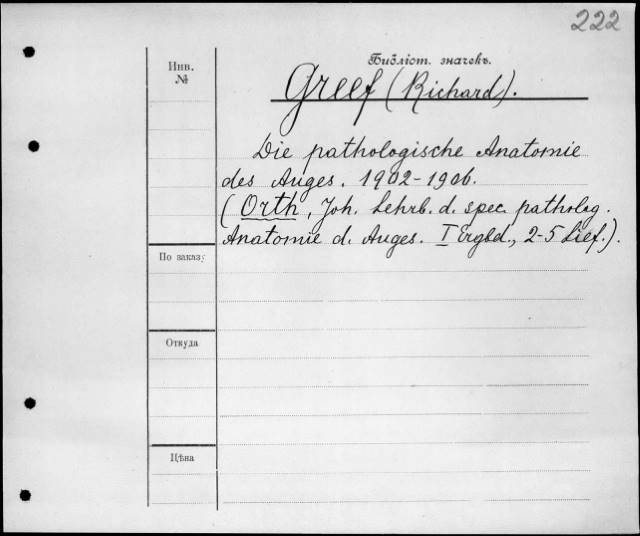 222
Инв.
№
Библіот. значекъ.
Greef (Richard).
Die pathologische Anatomie
des Auges. 1902-1906.
(Orth, Joh. Lehrb. d. spec. patholog.
Anatomie d. Auges. I Ergbd., 2-5 Lief.).
По заказу
Откуда
Цѣна